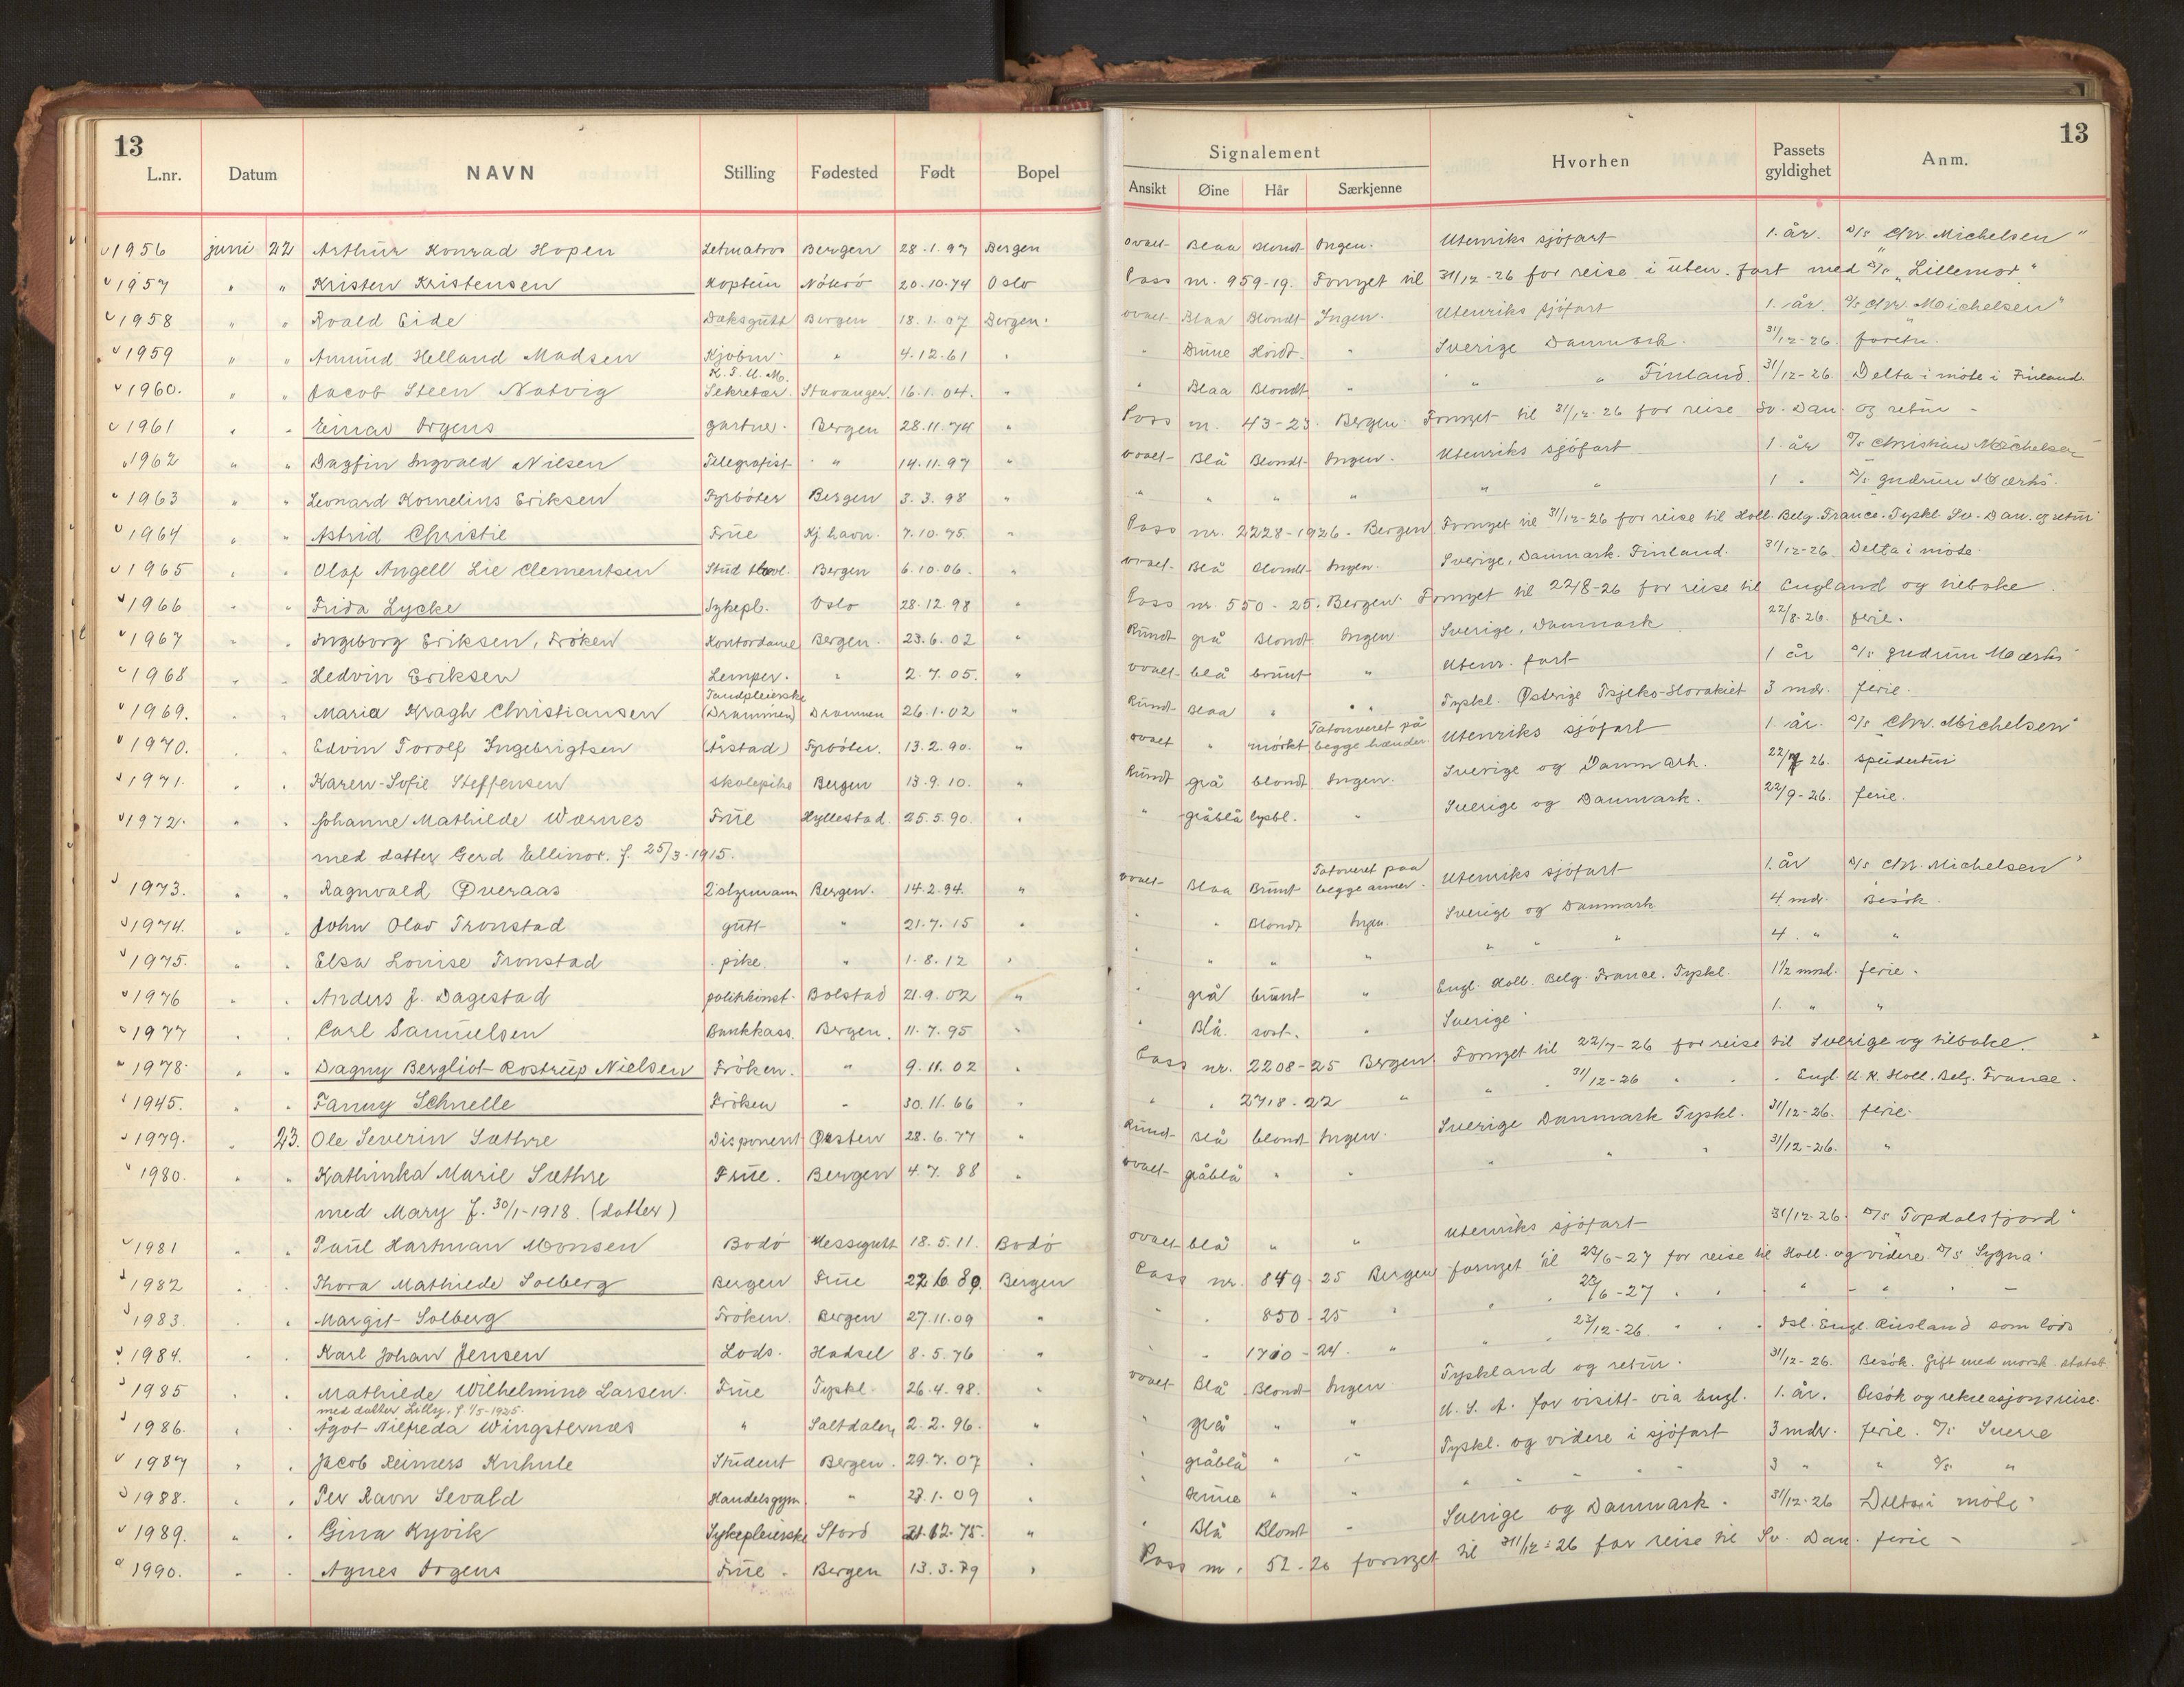 13
L.nr. Datum NAVN Stilling Fødested Født Bopel
Signalement
Ansikt Øine Hår Særkjenne
Hvorhen
Passets gyldighet
Anm.
13
1956 juni 22 Arthur Konrad Hopen Letmatros Bergen 28.1.97 Bergen ovalt Blaa Blondt Ingen. Utenriks sjöfart 1. år. D/s Chr. Michelsen"
1957 " " Kristen Kristensen Koptein Nöterö 20.10.74 Oslo Pass nr. 959-19. Fornyet til 31/12-26 for reise i uten. fart med D/s "Lillemor"
1958 " " Roald Eide Daksgutt Bergen 18.1.07 Bergen. ovalt Blaa Blondt Ingen. Utenriks sjöfart 1. år. D/s Chr. Michelsen"
1959 " " Amund Helland Madsen Kjöbm. " 4.12.61 " " Brune Hvidt. " Sverige Danmark. 31/12-26. foretn.
K.F.U.M.
1960. " " Jacob Steen Natvig Sekretær. Stavanger. 16.1.04. " " Blaa Blondt " " " Finland. 31/12-26. Delta i möte i Finland.
1961 " " Einar Orgens gartner. Bergen 28.11.74 " Pass nr. 43-23. Bergen. Fornyet til 31/12-26 for reise Sv. Dan. og retur -
1962 " " Dagfin Ingvald Nilsen Telegrafist " 14.11.97 " ovalt Blå Blondt Ingen. Utenriks sjöfart 1. år D/s Christian Michelsen
1963 " " Leonard Kornelius Eriksen Fyrböter Bergen 3.3.98 " " " " " " " 1 " D/s Gudrun Mærsk.
1964 " " Astrid Christie Frue Kj.havn. 7.10.75. " Pass nr. 2228-1926. Bergen Fornyet til 31/12-26 for reise til Holl. Belg. France. Tyskl. Sv. Dan. og retur
1965 " " Olaf Angell Lie Clementsen Stud. Bergen 6.10.06. " ovalt Blå Blondt Ingen. Sverige, Danmark. Finland. 31/12-26. Delta i möte.
1966 " " Frida Lycke Sykepl. Oslo 28.12.98 " Pass nr. 550-25. Bergen. Fornyet til 22/8-26 for reise til England og tilbake.
1967 " " Ingeborg Eriksen, Fröken Kontordame Bergen. 23.6.02 " Rundt grå Blondt Ingen. Sverige, Danmark 22/8-26. ferie.
1968 " " Hedvin Eriksen Lemper. " 2.7.05. " ovalt blå brunt " Utenr. fart 1 år D/s Gudrun Mærsk
Tandpleierske
1969. " " Maria Kragh Christiansen (Drammen) Drammen 26.1.02 " Rundt Blaa " " " Tyskl. Østerige Tsjeko-Slovakiet 3 mdr. ferie.
Tatoveret på
1970. " " Edvin Torolf Ingebrigtsen (Årstad) Fyrböter. 13.2.90. " ovalt " mörkt begge hænder Utenriks sjöfart 1. år. D/s Chr. Michelsen"
1971. " " Karen-Sofie Steffensen skolepike Bergen 13.9.10. " Rundt grå blondt Ingen. Sverige og Danmark. 22/7 26. speidertur
1972. " " Johanne Mathilde Wærnes Frue Hyllestad 25.5.90. " " gråblå lysbl. " Sverige og Danmark. 22/9-26. ferie.
med datter Gerd Ellinor. f. 25/3-1915.
Tatoveret paa
1973. " " Ragnvald Øveraas Bergen. 14.2.94. " ovalt Blaa Brunt begge armer. Utenriks sjöfart 1. år D/s Chr. Michelsen"
1974. " " John Olav Tronstad gutt " 21.7.15 " " " Blondt Ingen. Sverige og Danmark 4 mdr. Besök.
1975. " " Elsa Louise Tronstad pike. " 1.8.12 " " " " " " " " 4. " "
1976 " " Anders J. Dagestad politikonst. Bolstad 21.9.02 " " grå brunt " Engl. Holl. Belg. France. Tyskl. 1½ mnd. ferie.
1977 " " Carl Samuelsen Bankkass. Bergen. 11.7.95 " " Blå. sort. " Sverige 1. " "
1978. " " Dagny Bergliot Rostrup Nielsen Fröken. " 9.11.02 " Pass nr. 2208-25 Bergen Fornyet til 22/7-26 for reise til Sverige og tilbake.
1945. " " Fanny Schnelle Fröken " 30.11.66 " " " 2718-22 " " " 31/12-26 " " " Engl. U.K. Holl. Belg. France.
1979. " 23. Ole Severin Sæthre Disponent Ørsten 28.6.77 " Rundt Blå blondt Ingen. Sverige Danmark Tyskl. 31/12-26. ferie.
1980. " " Kathinka Marie Sæthre Frue. Bergen 4.7.88 " ovalt gråblå " " " " " 31/12-26. "
med Mary f. 30/1-1918. (datter)
1981 " " Paul Hartman Monsen Bodö Messegutt 18.5.11. Bodö ovalt blå " " Utenriks sjöfart 31/12-26. D/s Topdalsfjord"
1982 " " Thora Mathilde Solberg Bergen Frue 22.6.80. Bergen Pass nr. 849-25 Bergen fornyet til 23/6-27 for reise til Holl. og videre D/s Sygna"
1983. " " Margit Solberg Fröken. Bergen 27.11.09 " " " 850-25 " " " 23/6-27 " " " " "
1984. " " Karl Johan Jensen Lods. Hadsel 8.5.76 " " " 1710-24. " " " 23/12-26. " " " Isl. Engl. Rusland som lods
1985 " " Mathilde Wilhelmine Larsen. Frue Tyskl. 26.4.98. " ovalt Blå Blondt Ingen Tyskland og retur. 31/12-26. Besök. Gift med norsk statsb.
med datter Lilly. f. 1/5-1925.
1986. " " Ågot Nilfreda Wingsternæs " Saltdalen 2.2.96. " " grå " " U.S.A. for visitt via Engl. 1. år. Besök og rekreasjonsreise.
1987 " " Jacob Reimers Student Bergen. 29.7.07 " " gråblå " " Tyskl. og videre i sjöfart 3 mdr. ferie. D/s Sverre
1988. " " Per Ravn Sevald Handelsgym. " 27.1.09 " " Brune " " " " " " " 3 " " D/s "
1989. " " Gina Kyvik Sykepleierske Stord 21.12.75. " " Blå Blondt " Sverige og Danmark. 31/12-26 Delta i möte
1990. " " Agnes Orgens Frue. Bergen 13.3.79 " Pass nr. 52-20 fornyet til 31/12-26 for reise til Sv. Dan. ferie -